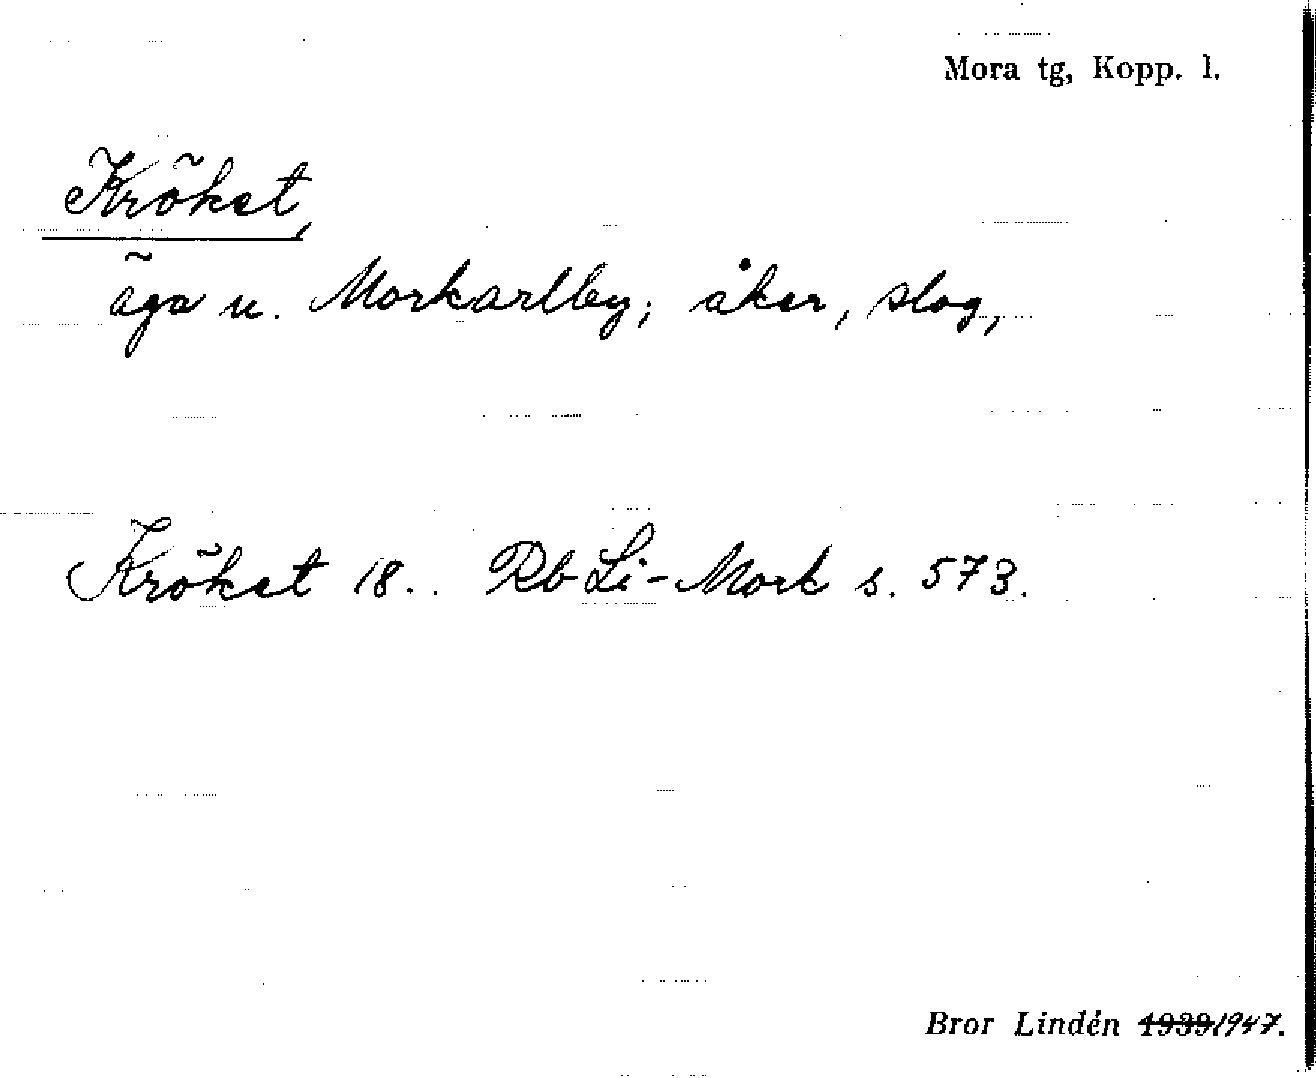 Mora tg, Kopp. l.
Krökst,
äga u. Morkarlby; åker, slog,
Krökst 18.. Rb Li-Mork s. 573.
Bror Lindén 1939 1947.